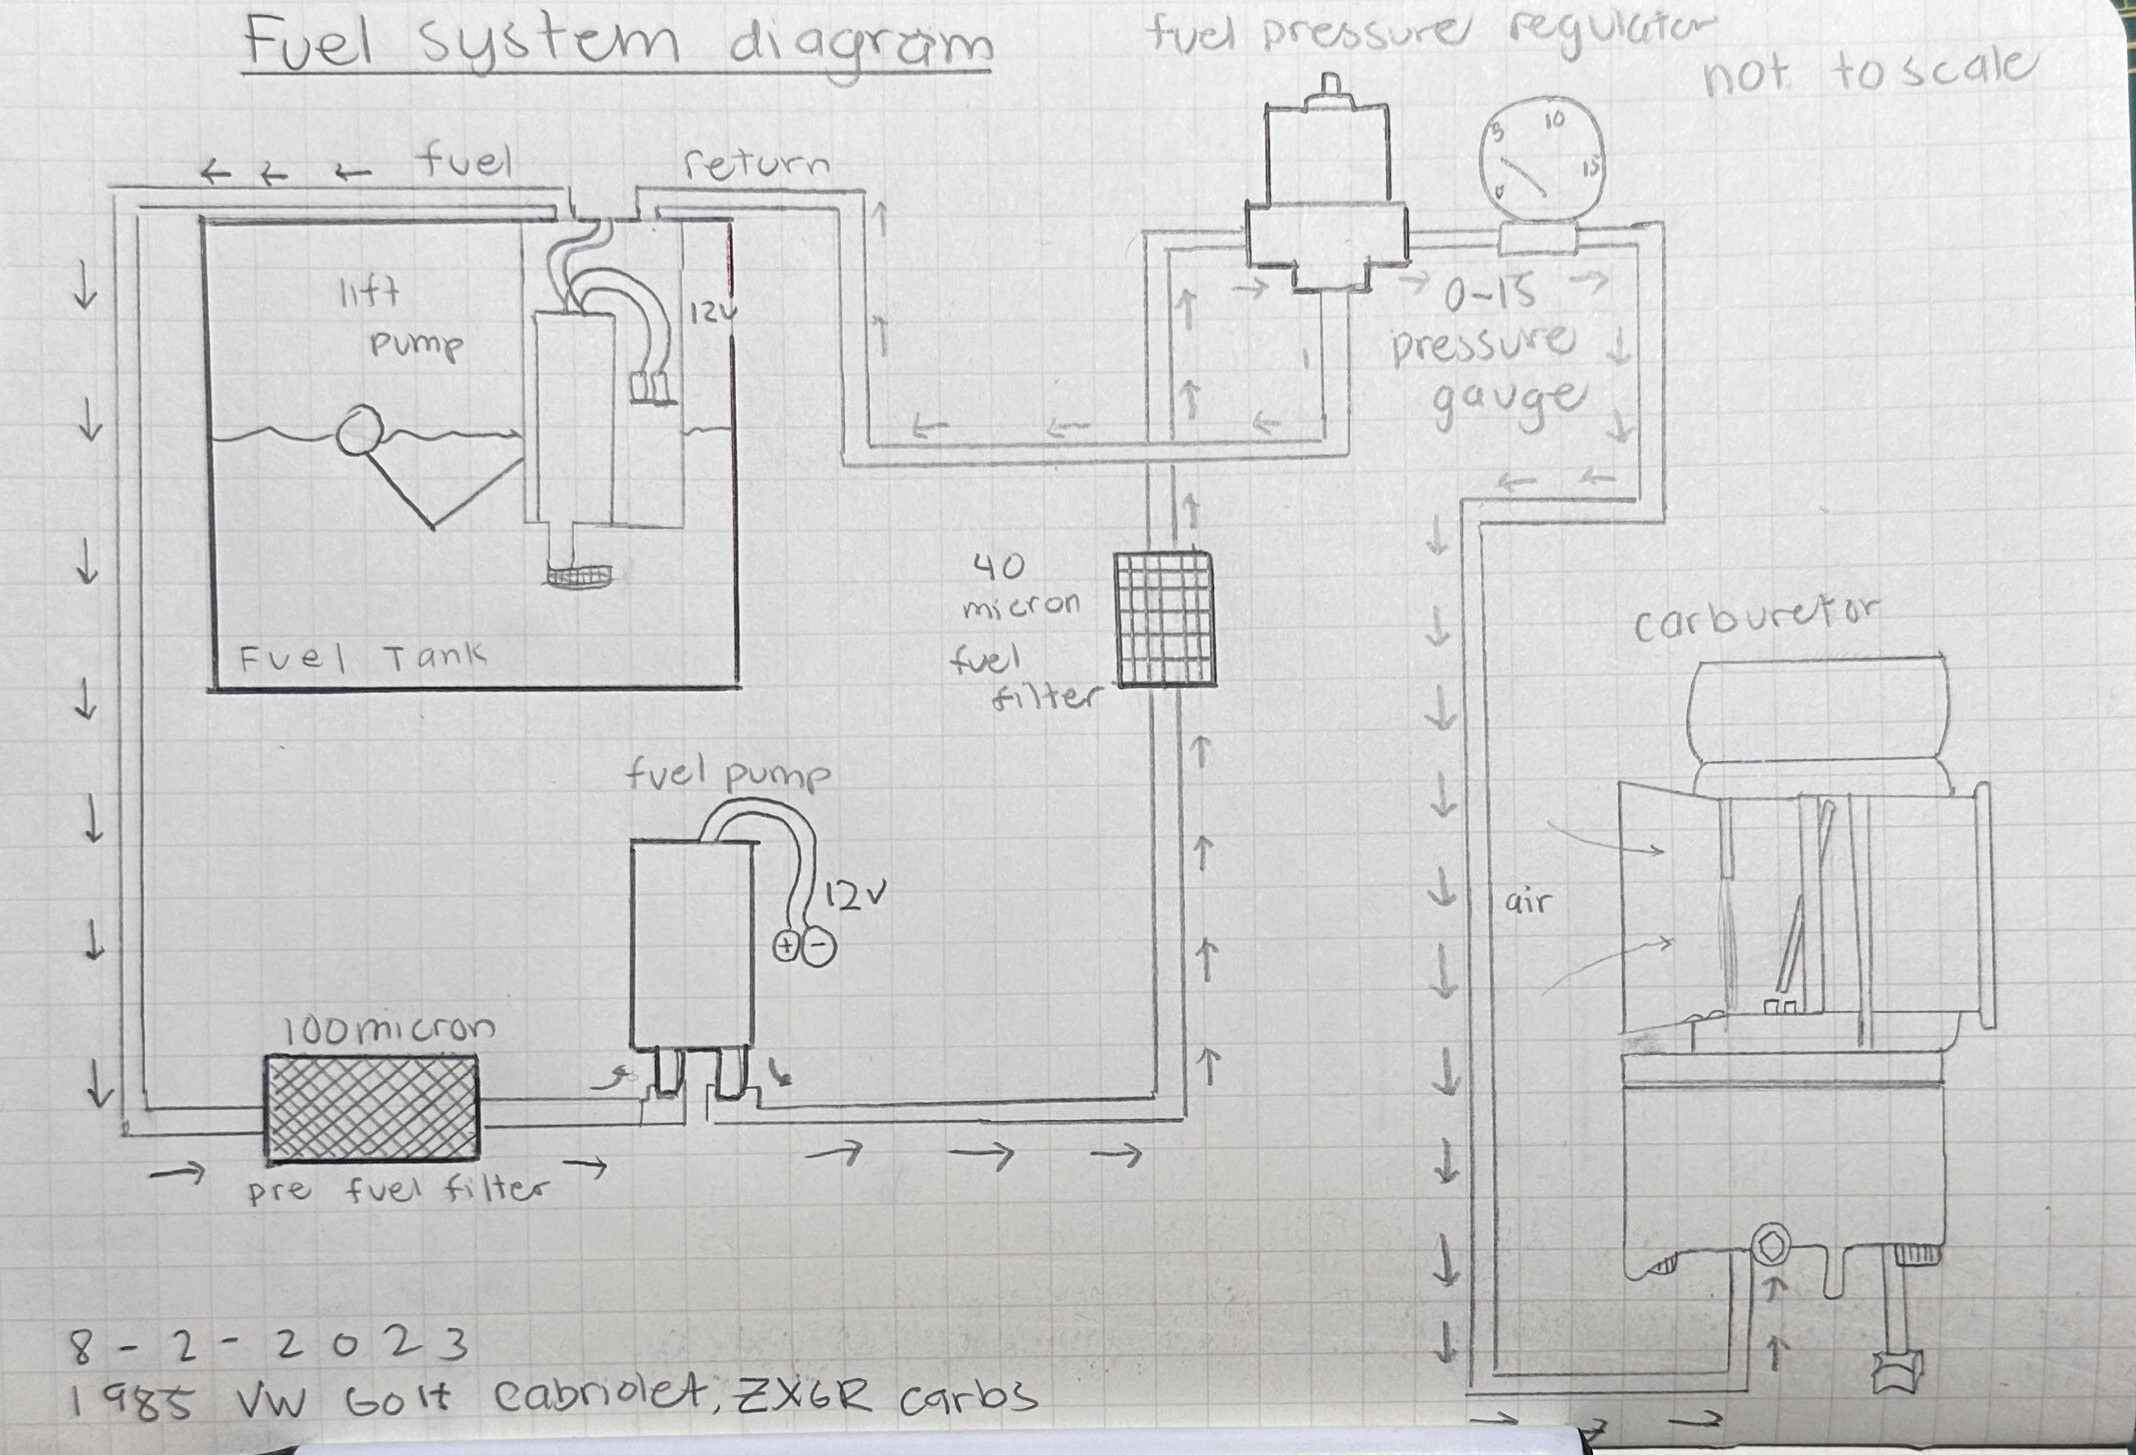 Fuel system diagram
fuel pressure regulator
not to scale
fuel
return
5
10
15
0
lift
pump
12V
0-15
pressure
gauge
40
micron
fuel
filter
Fuel Tank
carburetor
fuel pump
12V
+ -
air
100micron
pre fuel filter
8-2-2023
1985 VW Golf Cabriolet, ZX6R carbs